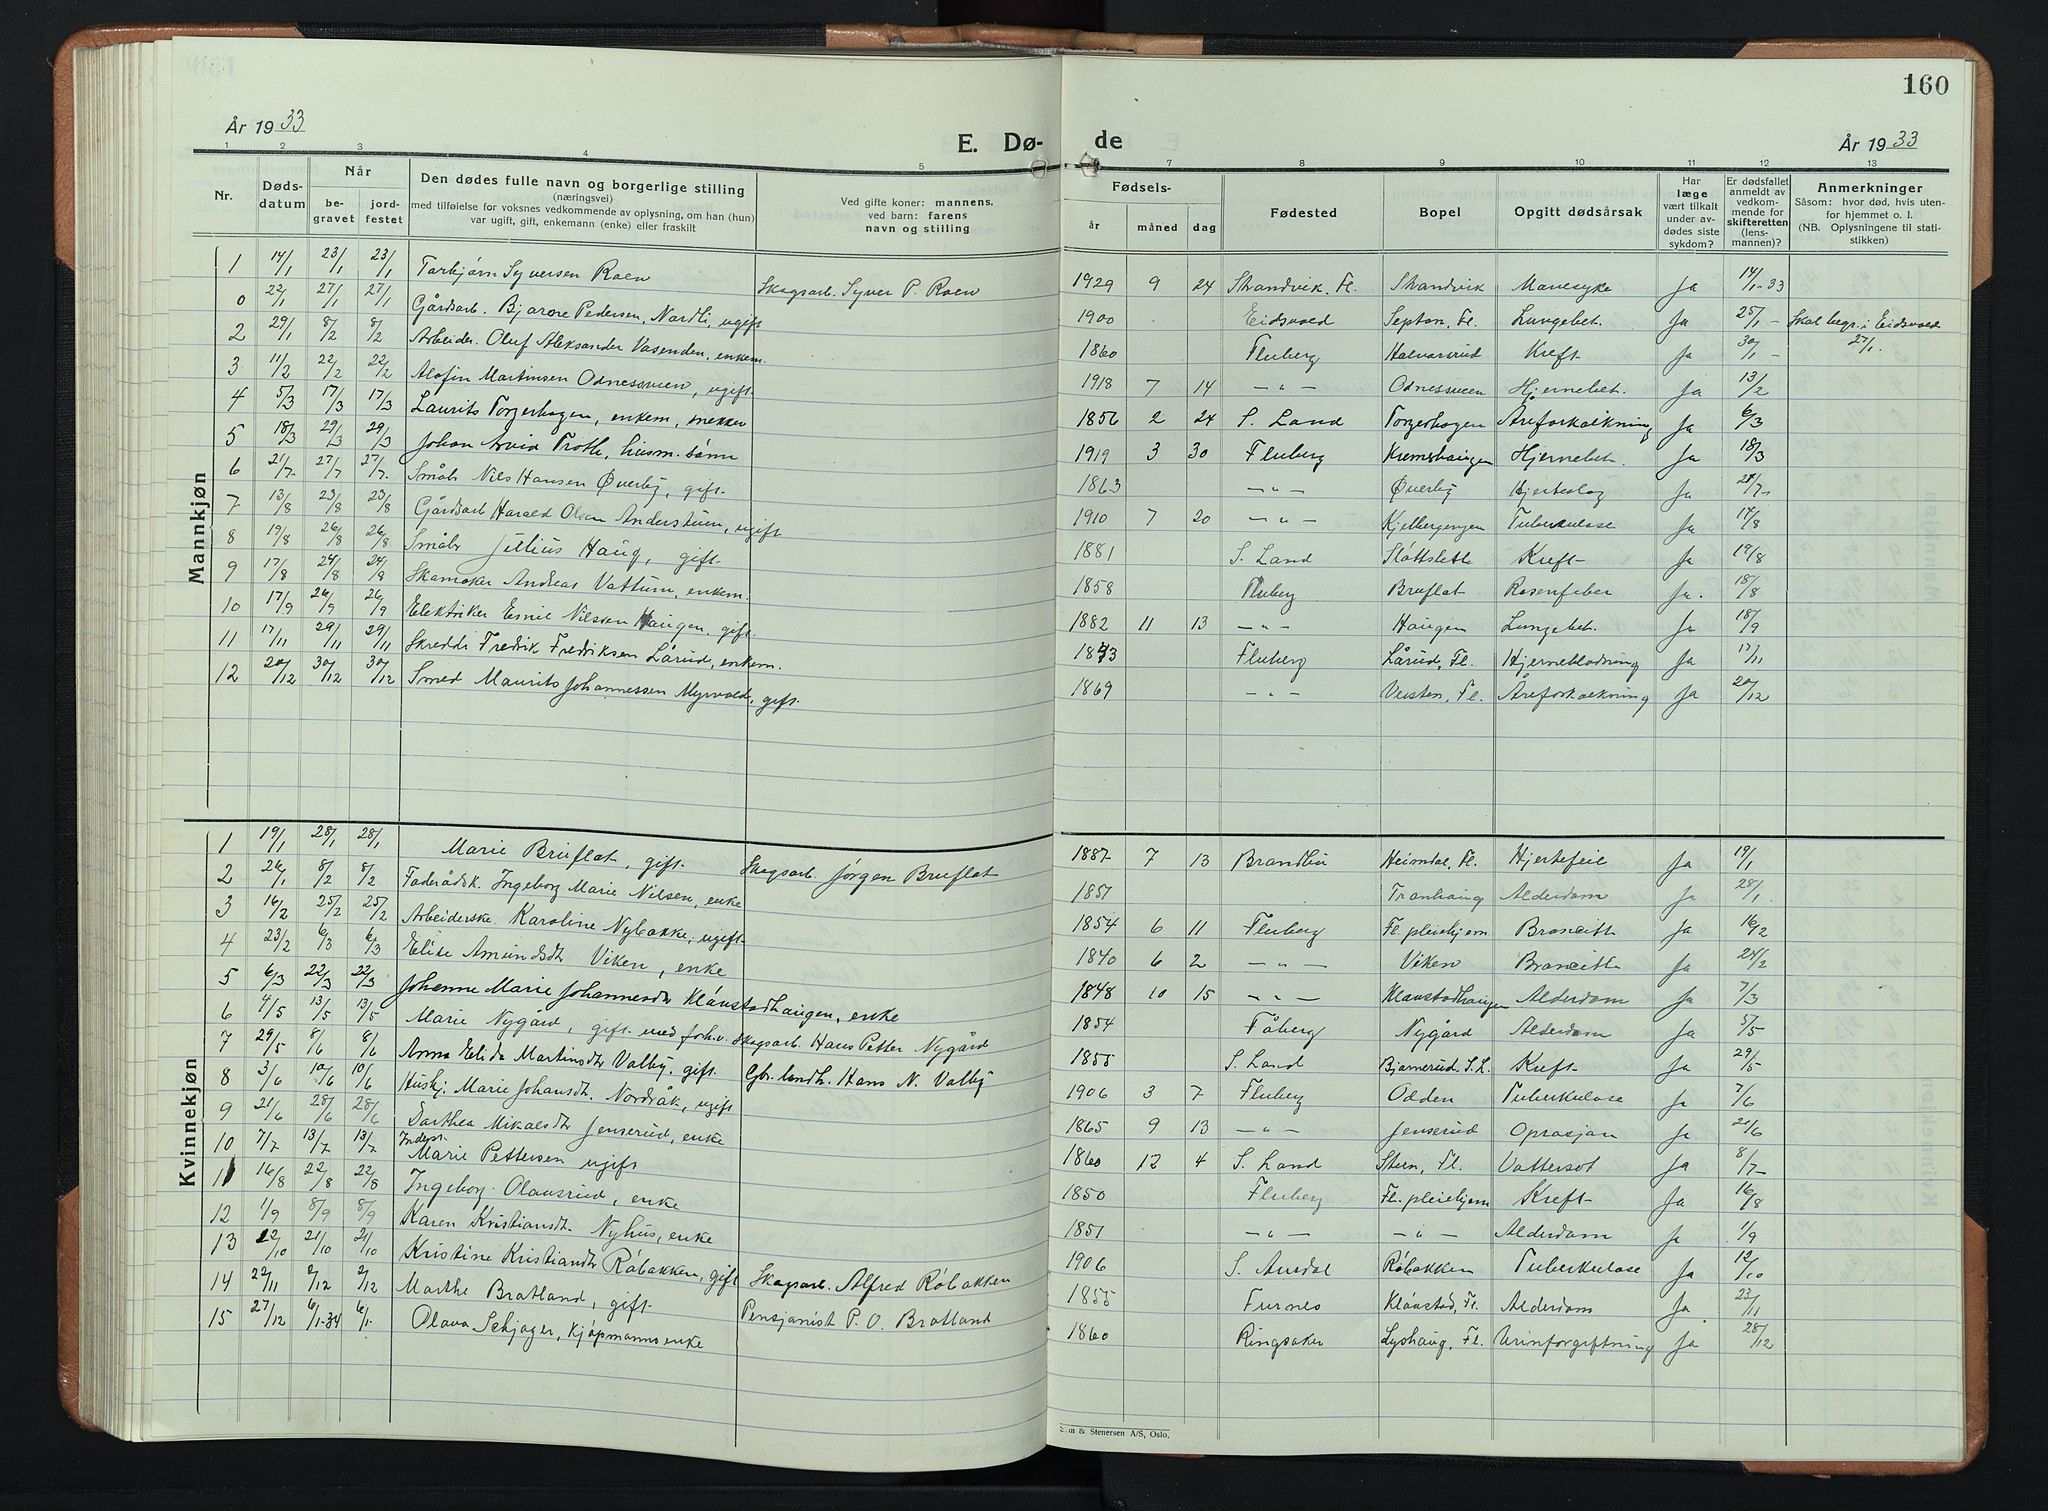 160
År 1933
E. Dø-
de
År 1933
1 2 3 4 5 7 8 9 10 11 12 13
Nr.
Døds-
datum
Når
be-
gravet
jord-
festet
Den dødes fulle navn og borgerlige stilling
(næringsvei)
med tilføielse for voksnes vedkommende av oplysning, om han (hun)
var ugift, gift, enkemann (enke) eller fraskilt
Ved gifte koner: mannens,
ved barn: farens
navn og stilling
Fødsels-
år måned dag
Fødested
Bopel
Opgitt dødsårsak
Har
læge
vært tilkalt
under av-
dødes siste
sykdom?
Er dødsfallet
anmeldt av
vedkom-
mende for
skifteretten
(lens-
mannen)?
Anmerkninger
Såsom: hvor død, hvis uten-
for hjemmet o. l.
(NB. Oplysningene til stati-
stikken)
Mannkjøn
1 14/1 23/1 23/1 Torbjørn Syversen Roen Skogsarb. Syver P. Roen 1929 9 24 Strandvik, Fl. Strandvik Mavesyke Ja 14/1-33
0 22/1 27/1 27/1 Gårdsarb. Bjarne Pedersen, Nordli, ugift 1900 Eidsvold Septon, Fl. Lungebet. Ja 25/1 - Skal begr. i Eidsvold 27/1.
2 29/1 8/2 8/2 Arbeider. Oluf Aleksander Vasenden, enkem. 1860 Fluberg Halvorsrud Kreft Ja 30/1 -
3 11/2 22/2 22/2 Alofin Martinsen Odnesveen, ugift 1918 7 14 -"- Odnesveen Hjernebet. Ja 13/2
4 5/3 17/3 17/3 Laurits Torgerhagen, enkem, snekker 1856 2 24 S. Land Torgerhagen Åreforkalkning Ja 6/3
5 18/3 29/3 29/3 Johan Arvid Troth, husm. sønn 1919 3 30 Fluberg Kremshaugen Hjernebet. Ja 18/3
6 21/7 27/7 27/7 Småbr Nils Hansen Øverby, gift 1863 -"- Øverby Hjerteslag Ja 21/7
7 13/8 23/8 23/8 Gårdsarb Harald Olsen Anderstuen, ugift 1910 7 20 -"- Kjelbergengen Tuberkulose Ja 17/8
8 19/8 26/8 26/8 Småbr Julius Haug, gift 1881 S. Land Slåttsletta Kreft Ja 19/8
9 17/8 24/8 24/8 Skomaker Andreas Vattum, enkem. 1858 Fluberg Bruflat Rosenfeber Ja. 18/8
10 17/9 26/9 26/9 Elektriker Emil Nilsen Haugen, gift. 1882 11 13 -"- Haugen Lungebet. Ja 18/9
11 17/11 29/11 29/11 Skredder Fredrik Fredriksen Lårud, enkem. 1843 Fluberg Lårud, Fl. Hjerneblødning Ja 17/11
12 20/12 30/12 30/12 Smed Maurits Johannessen Myrvold, gift. 1869 -"- Veisten, Fl. Åreforkalkning Ja 20/12
Kvinnekjøn
1 19/1 28/1 28/1 Marie Bruflat, gift Skogsarb. Jørgen Bruflat 1887 7 13 Brandbu Heimdal, Fl. Hjertefeil Ja 19/1
2 26/1 8/2 8/2 Føderådsk. Ingeborg Marie Nilsen, enke 1851 Tronhaug Alderdom Ja 28/1
3 16/2 25/2 25/2 Arbeiderske Karoline Nybakke, ugift 1854 6 11 Fluberg Fl. pleiehjem Bronkitt Ja 16/2
4 23/2 6/3 6/3 Elise Amundsdtr Viken, enke 1840 6 2 -"- Viken Bronkitt Ja 24/2
5 6/3 22/3 22/3 Johanne Marie Johannesdtr Klåvstadhaugen, enke 1848 10 15 -"- Klåvstadhaugen Alderdom Ja 7/3
6 4/5 13/5 13/5 Marie Nygård, gift med Joh.v. Skogsarb. Hans Petter Nygård 1854 Fåberg Nygård Alderdom Ja 5/5
7 29/5 8/6 8/6 Anna Elida Martinsdtr Valby, gift Gbr. landh. Hans N. Valby 1855 S. Land Bjørnerud, S.L. Kreft Ja 29/5
8 3/6 10/6 10/6 Hushj. Marie Johansdt. Nordråk, ugift 1906 3 7 Fluberg Odden Tuberkulose Ja 7/6
9 21/6 28/6 28/6 Dorthea Mikaelsdtr Jenserud, enke 1865 9 13 -"- Jenserud Oprasjon Ja 21/6
10 7/7 13/7 13/7 Marie Pettersen ugift 1860 12 4 S. Land Steen, Fl. Vattersot Ja 8/7
11 16/8 22/8 22/8 Ingeborg Olausrud, enke 1850 Fluberg Fl. pleiehjem Kreft Ja 16/8
12 1/9 8/9 8/9 Karen Kristiansdt. Nyhus, enke 1851 -"- -"- Alderdom Ja 1/9
13 12/10 21/10 21/10 Kristine Kristiansdtr Røbakken, gift Skogsarb. Alfred Røbakken 1906 S. Aurdal Røbakken Tuberkulose Ja 12/10
14 22/11 2/12 2/12 Marthe Bratland, gift Pensjonist P. O. Bratland 1855 Furnes Klåvstad, Fl. Alderdom Ja 23/11
15 27/12 6/1-34 6/1. Olava Schjager, kjøpmannsenke 1860 Ringsaker Lyshaug, Fl. Urinforgiftning Ja 28/12
& Stenersen A/S, Oslo.